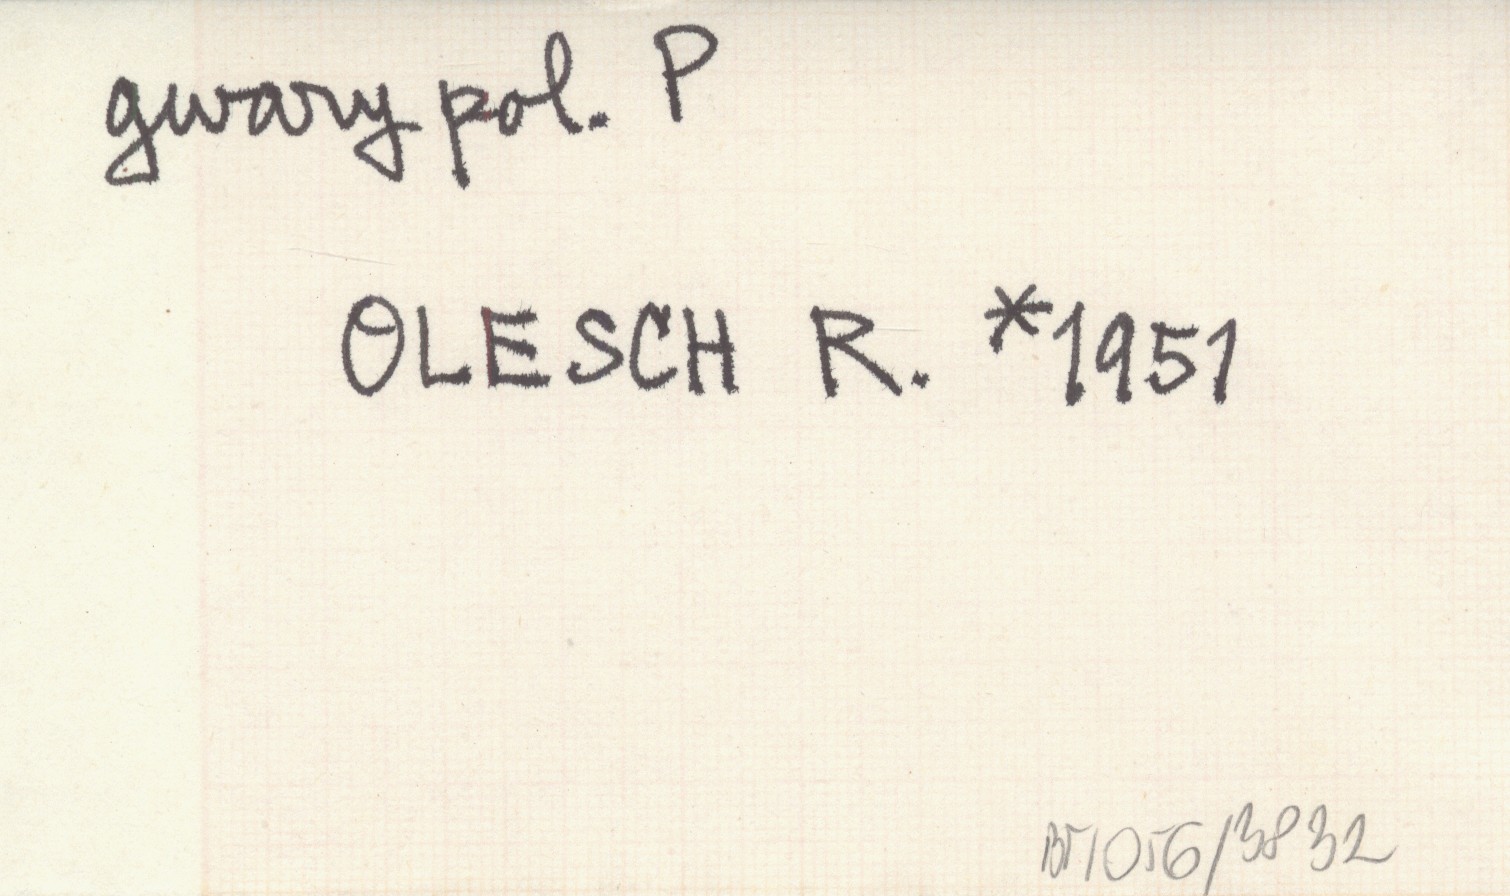 gwary pol. P
OLESCH R. *1951
BF/056/3832